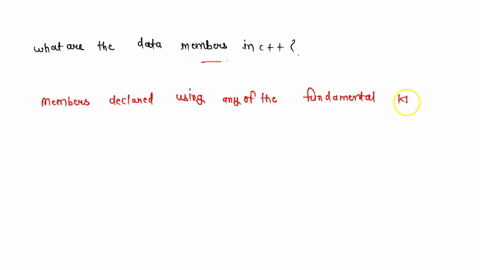 what are the data members in c++ ?
members declared using any of the fundamental